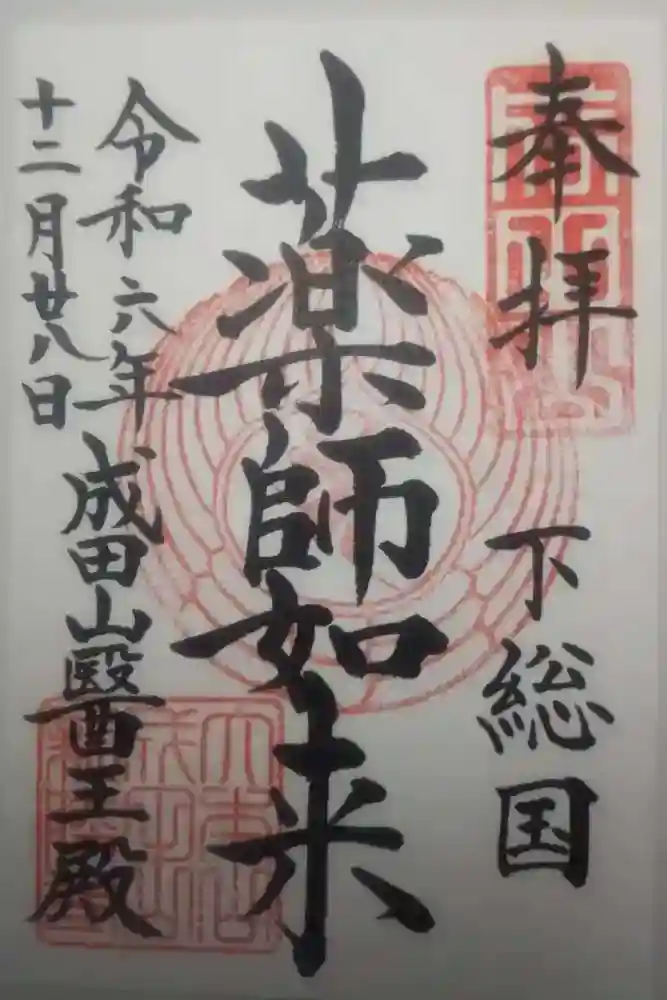 奉拝
下総国
薬師如来
令和六年
十二月廿八日
成田山醫王殿